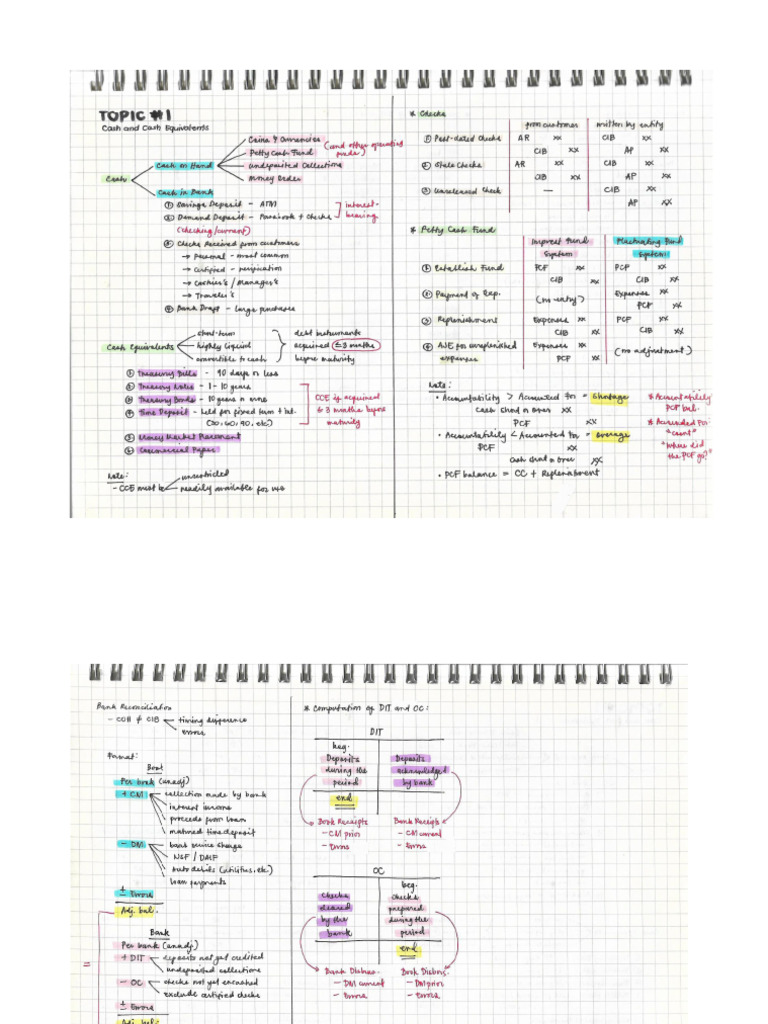 TOPIC #1
Cash and Cash Equivalents
Cash
Cash on Hand
Coins & Currencies
Petty Cash Fund
(and other operating funds)
Undeposited Collections
Money Order
Cash in Bank
① Savings Deposit - ATM
② Demand Deposit - Passbook + Checks
(checking/current)
interest-bearing
③ Checks Received from customers
→ Personal - most common
→ Certified - verification
→ Cashier's / Manager's
→ Traveler's
④ Bank Draft - large purchases
Cash Equivalents
short-term
highly liquid
convertible to cash
debt instruments
acquired ≤ 3 months
before maturity
① Treasury Bills - 90 days or less
② Treasury Notes - 1-10 years
③ Treasury Bonds - 10 years or more
④ Time Deposit - held for fixed term + int.
(30, 60, 90, etc)
CCE if acquired
≤ 3 months before
maturity
⑤ Money Market Placement
⑥ Commercial Paper
Note:
- CCE must be
unrestricted
readily available for use
* Checks
from customer
written by entity
① Post-dated Checks AR xx CIB xx
CIB xx AP xx
② Stale Checks AR xx CIB xx
CIB xx AP xx
③ Unreleased Check — CIB xx
AP xx
* Petty Cash Fund
Imprest Fund System
Fluctuating Fund System
① Establish Fund PCF xx PCF xx
CIB xx CIB xx
② Payment of Exp. (no entry) Expenses xx
PCF xx
③ Replenishment Expenses xx PCF xx
CIB xx CIB xx
④ AJE for unreplenished expenses Expenses xx (no adjustment)
PCF xx
Note:
• Accountability > Accounted for = Shortage
cash short or over xx
PCF xx
• Accountability < Accounted for = Overage
PCF xx
Cash short or over xx
• PCF balance = CC + Replenishment
* Accountability
PCF bal.
* Accounted for
"count"
"where did
the PCF go?"
Bank Reconciliation
- COB ≠ CIB
timing difference
errors
Format:
Book
Per book (unadj)
+ CM
collection made by bank
interest income
proceeds from loan
matured time deposit
- DM
bank service charge
NSF / DAIF
auto debits (utilities, etc.)
loan payments
± Errors
Adj. bal.
Bank
Per bank (unadj)
+ DIT
deposits not yet credited
undeposited collections
- OC
checks not yet encashed
exclude certified checks
± Errors
Adj. bal.
=
* Computation of DIT and OC:
DIT
beg.
Deposits
during the
period
Deposits
acknowledged
by bank
end
Book Receipts
- CM prior
- Errors
Bank Receipts
- CM current
- Errors
OC
Checks
cleared
by the
bank
beg.
Checks
prepared
during the
period
end
Bank Disburs.
- DM current
- Errors
Book Disburs.
- DM prior
- Errors